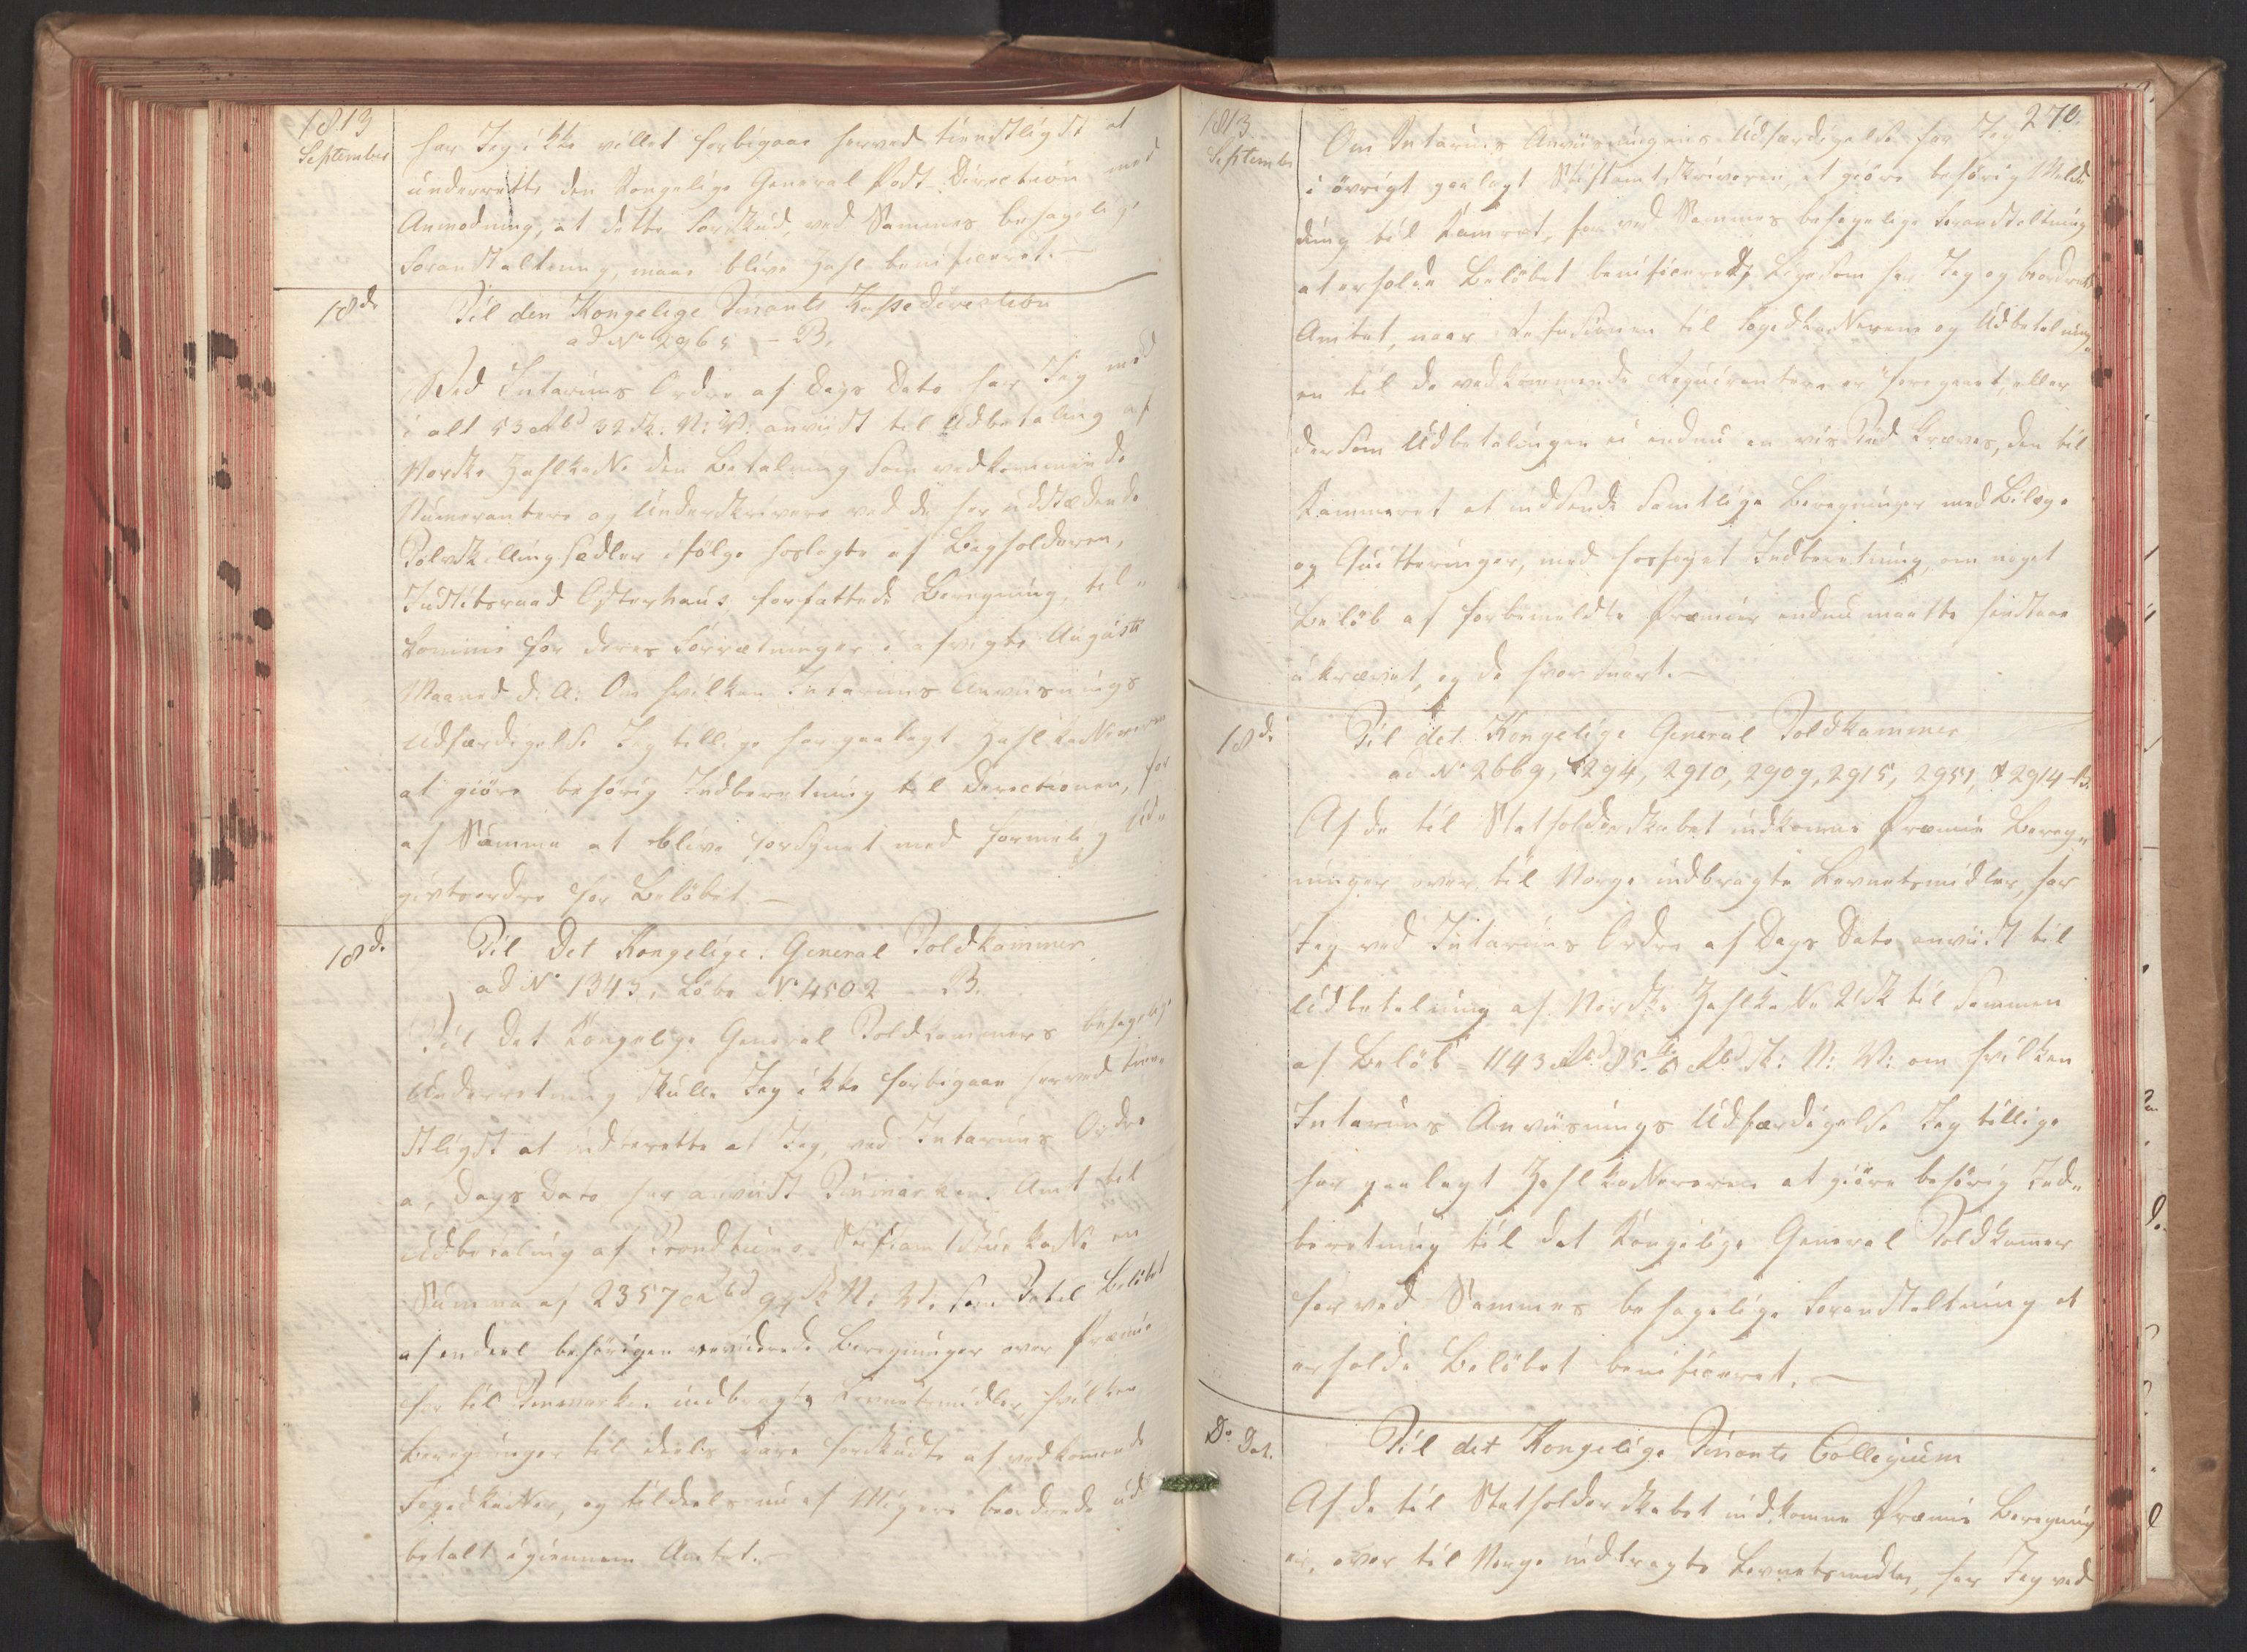 1813
September
har Jeg ikke villet forbigaae herved tienstligst at
underrette den Kongelige General Post-Direction med
Anmodning, at dette Forskud, ved Sammes behagelige
Foranstaltning, maae blive Zahlk. beneficeret. –
18de
Til den Kongelige Finants Kasse direction
ad No 2965 – B.
Ved Interims Ordre af Dags Dato har Jeg med
i alt 53 Rbd 32 Sk. N: V: anviist til Udbetaling af
Norske Zahlkasse den Betalning som vedkommende
Numerantere og Underskrivere ved de her udstædende
Tolvskillingsedler ifølge hoslagte af Bogholderen,
Justitsraad Osterhaus forfattede Beregning, til-
komme for deres Forrætninger i afvigte Augusti
Maaned d: A: Om hvilken Interims Anviisnings
Udfærdigelse Jeg tillige har paalagt Zahlkassereren
at giöre behörig Indberetning til Directionen, for
af Samme at blive forsynet med formelig Ud-
givtsordre for Belöbet. –
18d.
Til Det Kongelige General Toldkammer
ad No 1343, Löbe No 4502 – B.
Til Det Kongelige General Toldkammers behagelige
Underretning skulle Jeg ikke forbigaae herved tiene-
stligst at indberette at Jeg, ved Interims Ordre
af Dags Dato har anviist Finmarkens Amt til
Udbetaling af Trondhiems Stiftamtstue Kasse en
Summa af 2357 Rbd 94 Sk N: V. som Total Belöbet
af endeel behörigen reviderede Beregninger over Præmie
for til Finmarken indbragte Levnetsmidler, hvilken
Beregninger til deels ere forskudte af vedkommende
Fogedkasser, og tildeels nu af Migere beordrede ud-
betalt igiennem Amtet. –
1813.
September
270.
Om Interims Anviisningens Udfærdigelse har Jeg
i övrigt paalagt Stiftamtskriveren, at giöre behörig Mel-
ding til Kamret, for ved Sammes behagelige Foranstaltning
at erholde Belöbet beneficeret; Ligesom har Jeg og beordret
Amtet, naar Refusionen til Fogedkasserne og Udbetalning-
en til de vedkommende Requirentere er foregaaet, eller
dersom Udbetalingen ei endnu en vis Tiid kræves, den til
Kammeret at indsende samtlige Beregninger med Bilage
og Quitteringer, med hosföyet Indberetning, om noget
Belöb af forbemeldte Præmier endnu maatte henstaae
ukrævet, og da hvor stort. –
18d.
Til det Kongelige General Toldkammer
ad No 2669, 2294, 2910, 2909, 2915, 2951, & 2914 – B.
Af de til Statholderskabet indkomne Præmie Bereg-
ninger over til Norge indbragte Levnetsmidler, har
Jeg ved Interims Ordre af Dags Dato anviist til
Udbetalning af Norske Zahlkasse 2 Stk til sammen
af Belöb = 1143 Rbd 85 4/6 Rbd Sk: N: V: om hvilken
Interims Anviisnings Udfærdigelse Jeg tillige
har paalagt Zahlkassereren at giöre behörig Ind-
beretning til det Kongelige General Toldkammer
for ved Sammes behagelige Foranstaltning at
erholde Belöbet beneficeret. –
Do Dat.
Til det Kongelige Finants Collegium
Af de til Statholderskabet indkomne Præmie Beregning
er, over til Norge indbragte Levnetsmidler, har Jeg ved